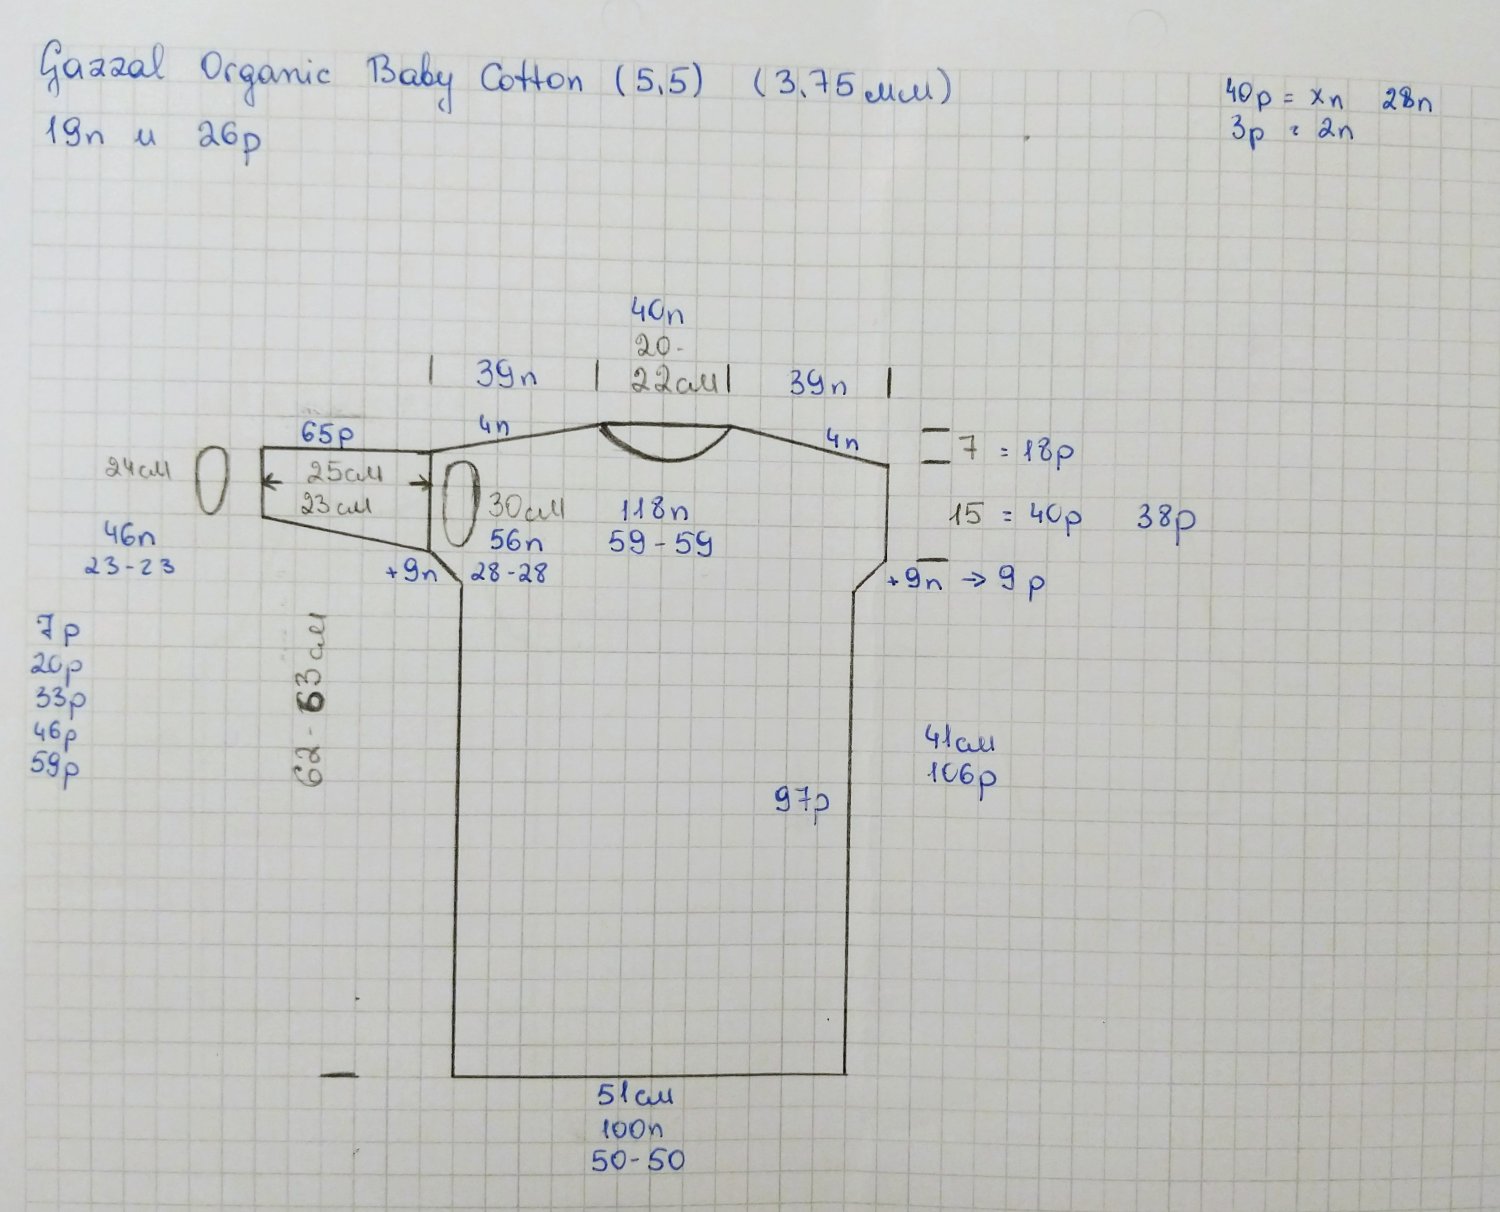 Gazzal Organic Baby Cotton (5,5) (3,75 мм)
19п и 26р
40р = xп 28п
3р = 2п
40п
20-
22см
39п
39п
4п
4п
65р
25см
23см
24см
46п
23-23
30см
56п
28-28
118п
59-59
7 = 18р
15 = 40р 38р
+9п
+9п → 9р
7р
20р
33р
46р
59р
62-63см
41см
106р
97р
51см
100п
50-50